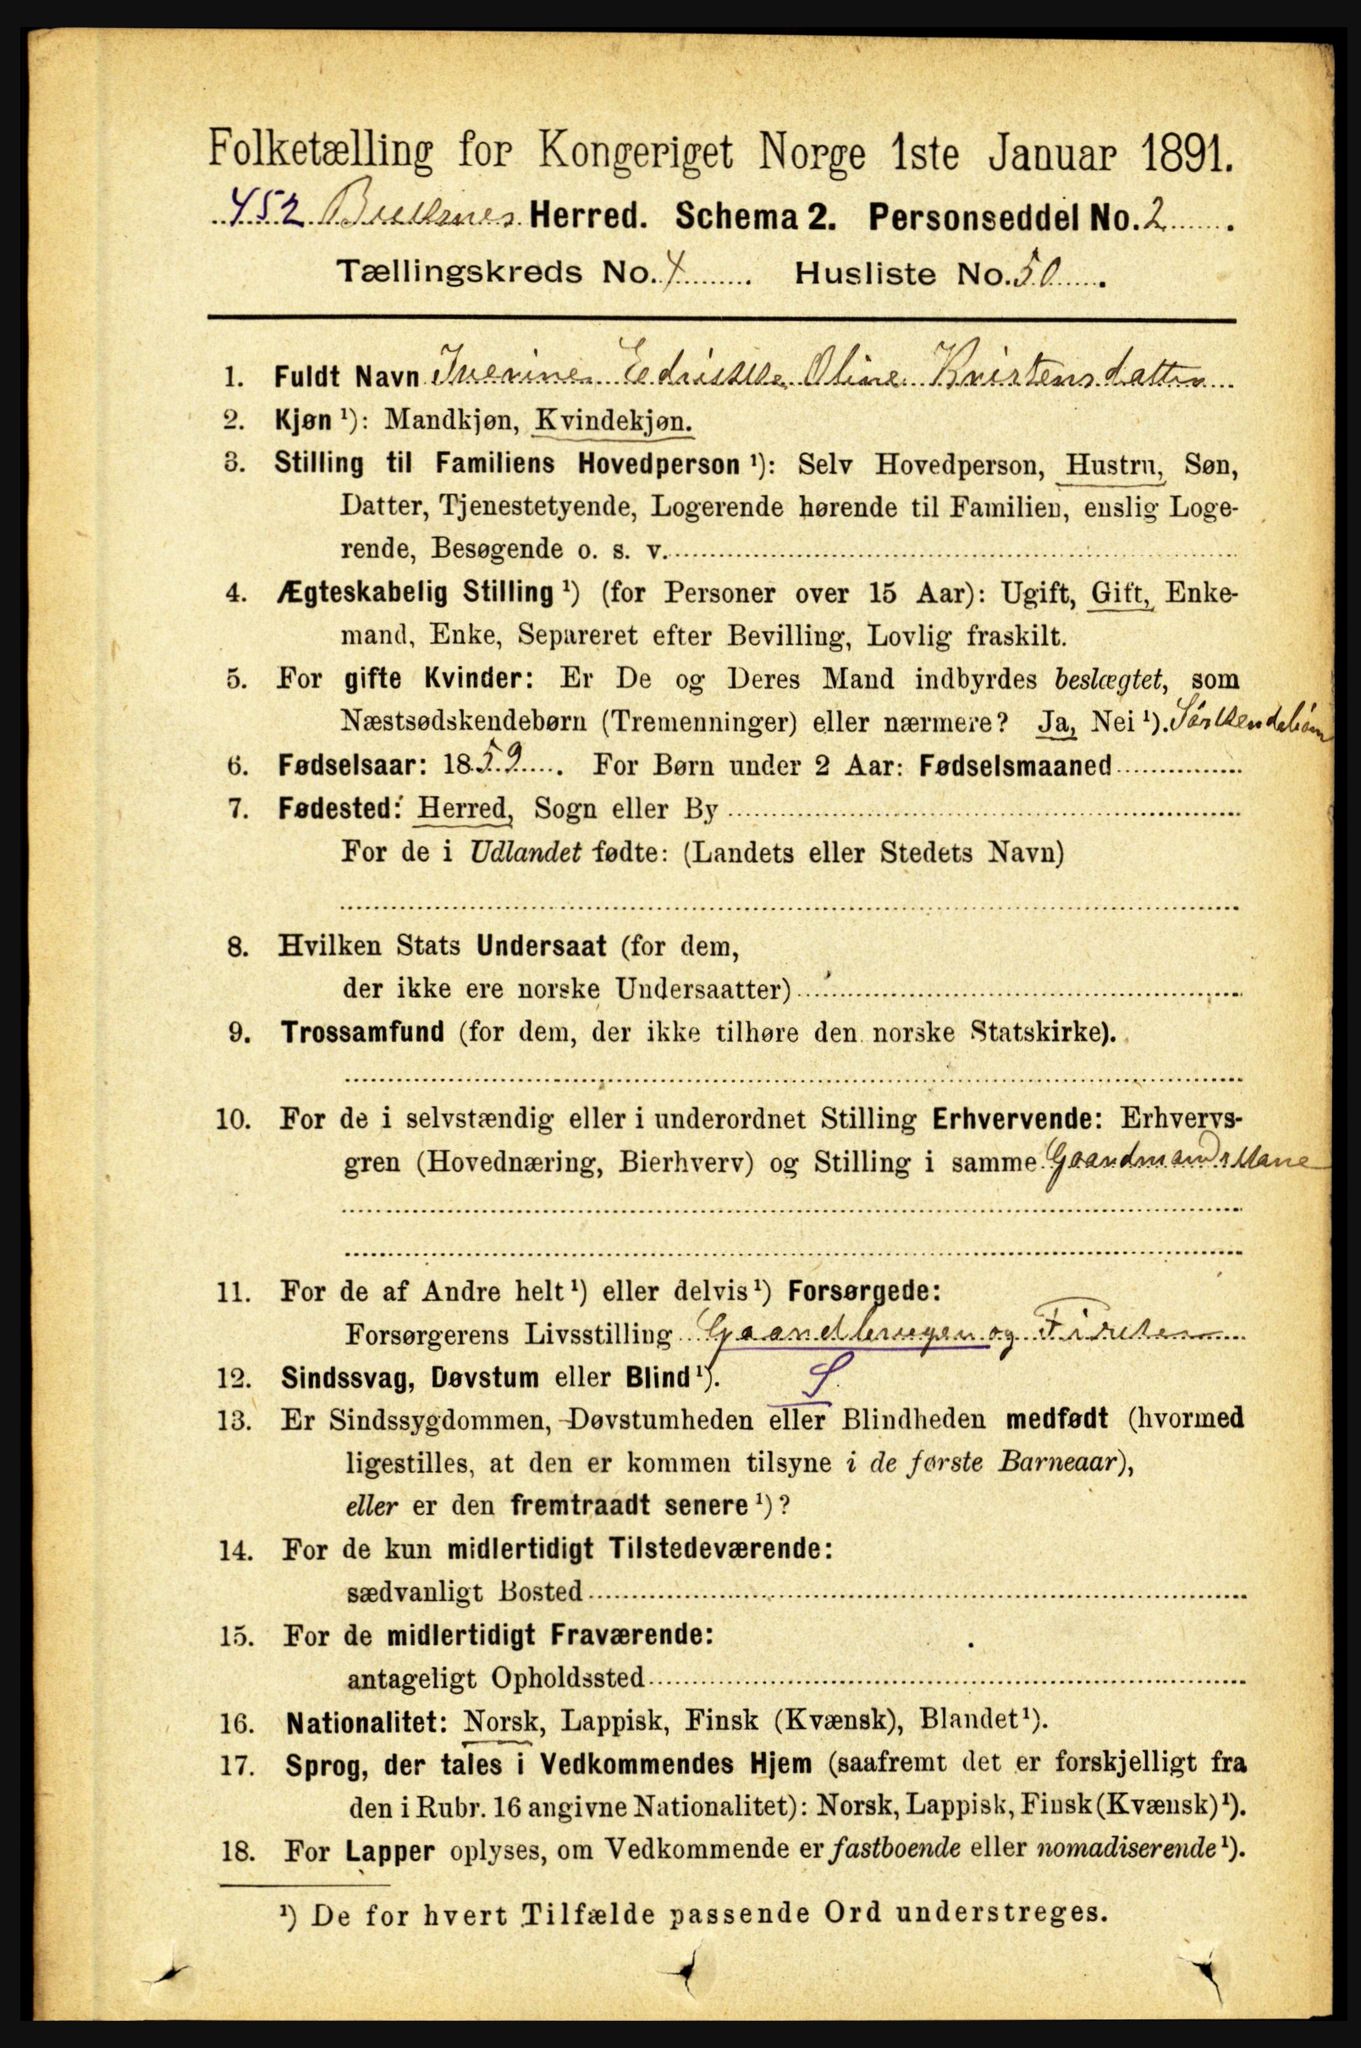 Folketælling for Kongeriget Norge 1ste Januar 1891.
Herred. Schema 2. Personseddel No. 2
Tællingskreds No. 4 Husliste No. 50
1. Fuldt Navn Oline Kristensdatter
2. Kjøn ¹): Mandkjøn, Kvindekjøn.
3. Stilling til Familiens Hovedperson ¹): Selv Hovedperson, Hustru, Søn,
Datter, Tjenestetyende, Logerende hørende til Familien, enslig Loge-
rende, Besøgende o. s. v.
4. Ægteskabelig Stilling ¹) (for Personer over 15 Aar): Ugift, Gift, Enke-
mand, Enke, Separeret efter Bevilling, Lovlig fraskilt.
5. For gifte Kvinder: Er De og Deres Mand indbyrdes beslægtet, som
Næstsødskendebørn (Tremenninger) eller nærmere? Ja, Nei ¹).
6. Fødselsaar: 1859. For Børn under 2 Aar: Fødselsmaaned
7. Fødested: Herred, Sogn eller By
For de i Udlandet fødte: (Landets eller Stedets Navn)
8. Hvilken Stats Undersaat (for dem,
der ikke ere norske Undersaatter)
9. Trossamfund (for dem, der ikke tilhøre den norske Statskirke).
10. For de i selvstændig eller i underordnet Stilling Erhvervende: Erhvervs-
gren (Hovednæring, Bierhverv) og Stilling i samme
11. For de af Andre helt ¹) eller delvis ¹) Forsørgede:
Forsørgerens Livsstilling Gaardbruger og Fisker
12. Sindssvag, Døvstum eller Blind ¹). S
13. Er Sindssygdommen, Døvstumheden eller Blindheden medfødt (hvormed
ligestilles, at den er kommen tilsyne i de første Barneaar),
eller er den fremtraadt senere ¹)?
14. For de kun midlertidigt Tilstedeværende:
sædvanligt Bosted
15. For de midlertidigt Fraværende:
antageligt Opholdssted
16. Nationalitet: Norsk, Lappisk, Finsk (Kvænsk), Blandet ¹).
17. Sprog, der tales i Vedkommendes Hjem (saafremt det er forskjelligt fra
den i Rubr. 16 angivne Nationalitet): Norsk, Lappisk, Finsk (Kvænsk) ¹).
18. For Lapper oplyses, om Vedkommende er fastboende eller nomadiserende ¹).
¹) De for hvert Tilfælde passende Ord understreges.